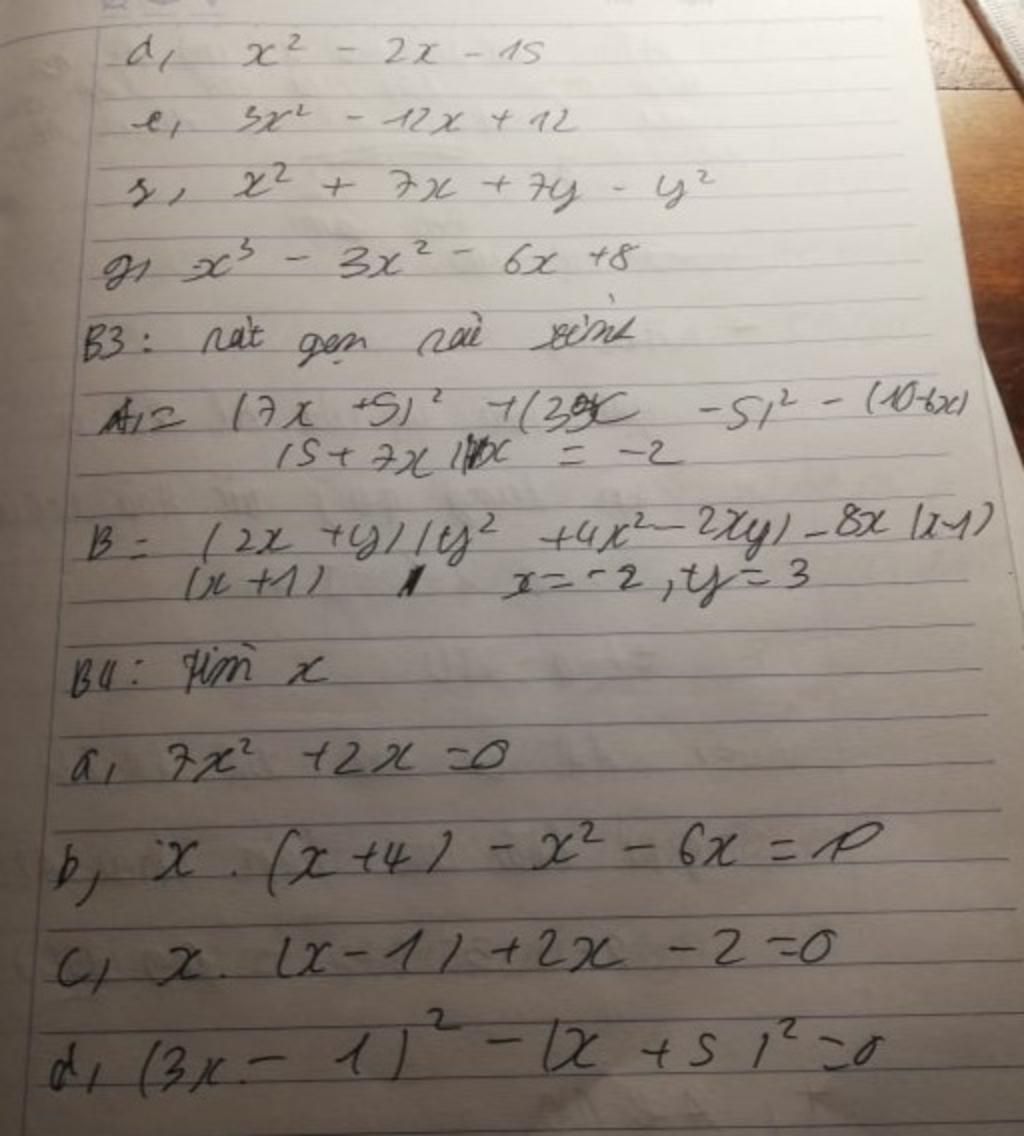 d, x² - 2x - 15
e, 3x² - 12x + 12
x² + 7x + 7y - y²
g, x³ - 3x² - 6x + 8
B3: rút gọn rồi
A = (7x + 5)² + (3 - 5)² - (10-6x)
(5 + 7x) x = -2
B = (2x + y)(y² + 4x² - 2xy) - 8x(x-1)
(x + 1) x = -2, y = 3
B4: tìm x
a, 7x² + 2x = 0
b, x . (x + 4) - x² - 6x =
c, x. (x - 1) + 2x - 2 = 0
d, (3x - 1)² - (x + 5)² = 0